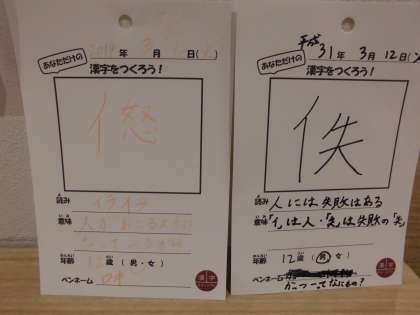 2019年 3月 日( )
あなただけの
漢字をつくろう!
読み イライラ
意味 人が おこるスイッチ
年齢 12歳 (男・女)
ペンネーム
漢字
平成31年 3月 12日( )
あなただけの
漢字をつくろう!
佚
読み 人には失敗はある
意味 「イ」は人・「失」は失敗の「失」
年齢 12歳 (男・女)
ペンネーム がっつってなにもの?
漢字